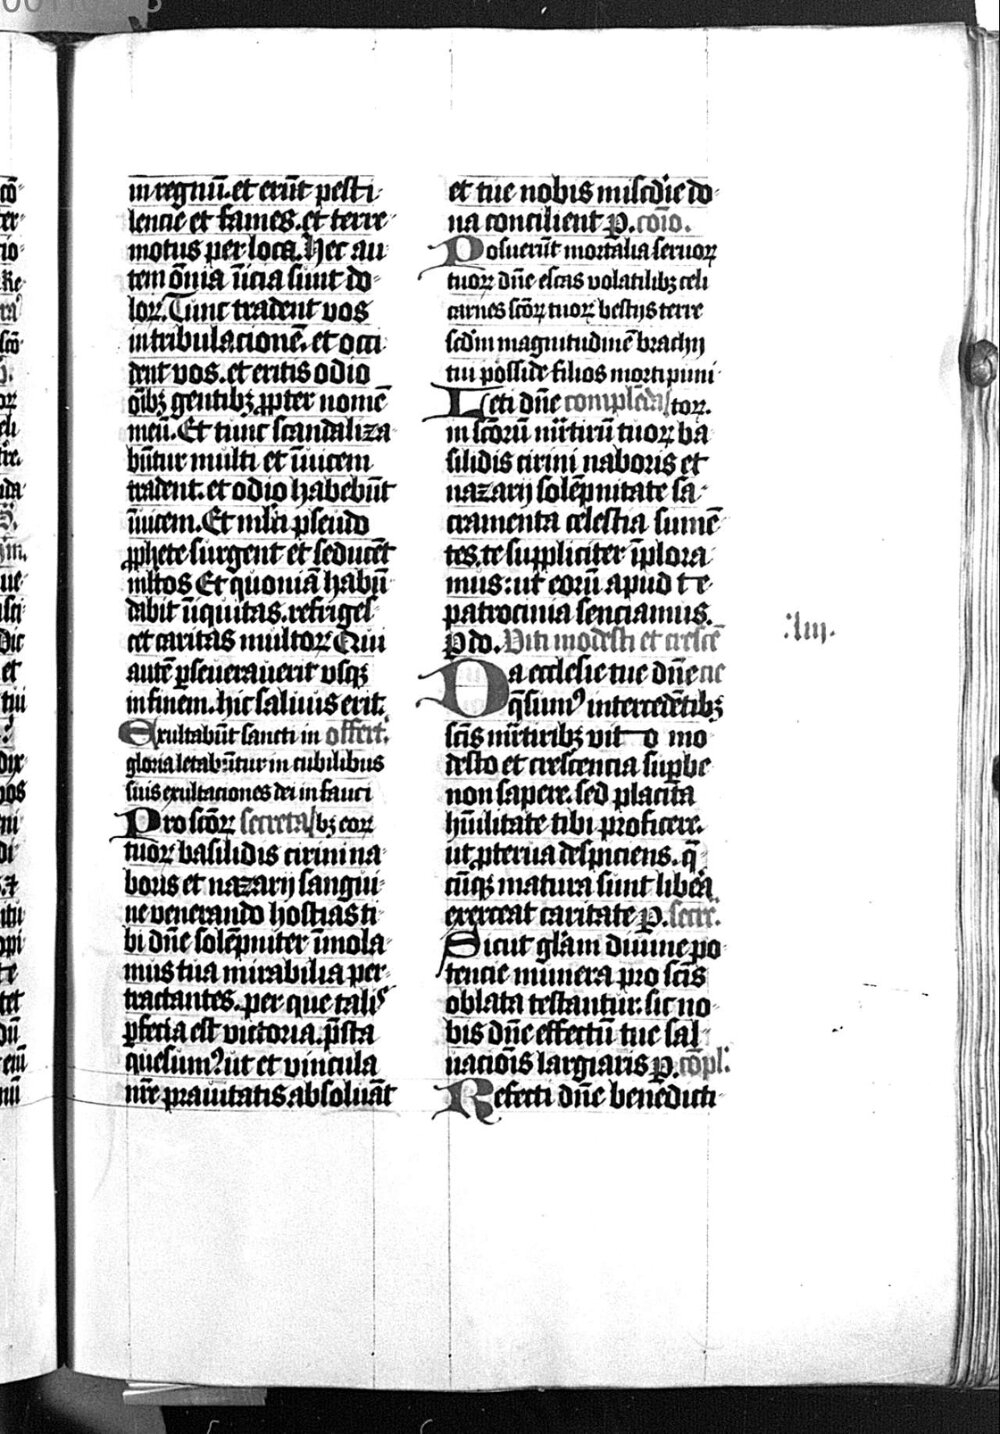 in regnū. et erūt pesti
lencie et fames. et terre
motus per loca. Hec au
tem ōnia īicia sunt do
lorꝝ. Tunc tradent vos
in tribulacionē. et occi
dent vos. et eritis odio
oībꝫ gentibꝫ ꝓpter nomē
meū. Et tunc scandaliza
būtur multi et īuicem
tradent. et odio habebūt
īuicem. Et ml̄ti pseudo
ꝓphete surgent et seducēt
ml̄tos Et quoniā habū
dabit īiquitas. refriges
cet caritas multorꝝ Qui
autē ꝑseuerauerit vsqꝫ
in finem. hic saluus erit.
Exultabūt sancti in offert.
gloria letabūtur in cubilibus
suis exultaciones dei in fauci
Pro scōrꝝ secreta bꝫ eorꝝ
tuorꝝ basilidis cirini na
boris et nazarij sangui
ne venerando hostias ti
bi dn̄e solēpniter īmola
mus tua mirabilia per
tractantes. per que talis
ꝑfecta est victoria. p̄sta
quesumꝰ ut et vincula
nr̄e prauitatis absoluāt
et tue nobis miscd̄ie do
na concilient ꝑ. cōio.
Posuerūt mortalia seruorꝝ
tuorꝝ dn̄e escas volatilibꝫ celi
carnes scōrꝝ tuorꝝ bestijs terre
scd̄m magnitudinē brachij
tui posside filios morti puni
Leti dn̄e complēda torꝝ.
in scōrū mr̄tirū tuorꝝ ba
silidis cirini naboris et
nazarij solēpnitate sa
cramenta celestia sumē
tes. te suppliciter īplora
mus: ut eorū apud te
patrocinia senciamus.
ꝑ do. Viti modesti et crescē
Da ecclesie tue dn̄e cie
q̄sumꝰ intercedētibꝫ
scīs mr̄tiribꝫ vito mo
desto et crescencia suꝑbe
non sapere. sed placita
hūilitate tibi proficere.
ut ꝓterua despiciens. q̄
cūqꝫ matura sunt libera
exerceat caritate ꝑ. secre.
Sicut glām diuine po
tencie munera pro scīs
oblata testantur: sic no
bis dn̄e effectū tue sal
uacionis largiaris ꝑ. cōpl.
Refecti dn̄e benedicti